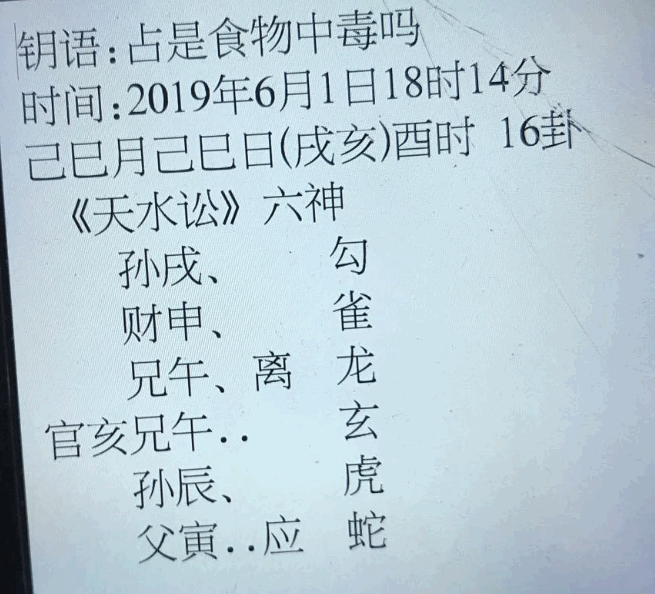 钥语:占是食物中毒吗
时间:2019年6月1日18时14分
己巳月己巳日(戌亥)酉时 16卦
《天水讼》六神
孙戌、 勾
财申、 雀
兄午、离 龙
官亥兄午.. 玄
孙辰、 虎
父寅..应 蛇